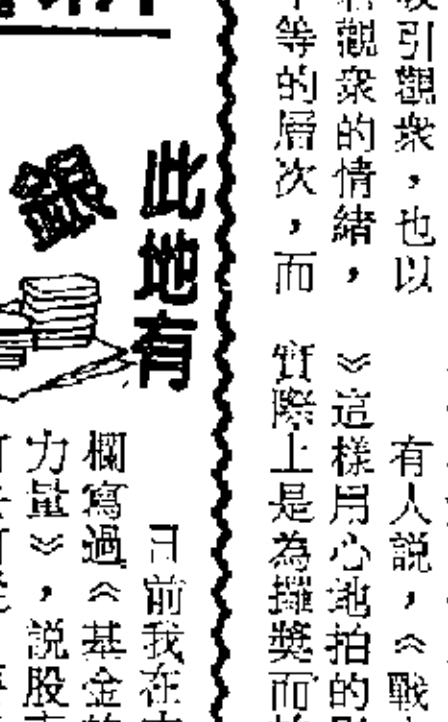 引觀衆，也以
觀衆的情緒，
等的層次，而
有人説，《戰
》這樣用心地拍的
實際上是為攞獎而
此地有
銀
日前我在
欄寫過《基金
力量》，説股